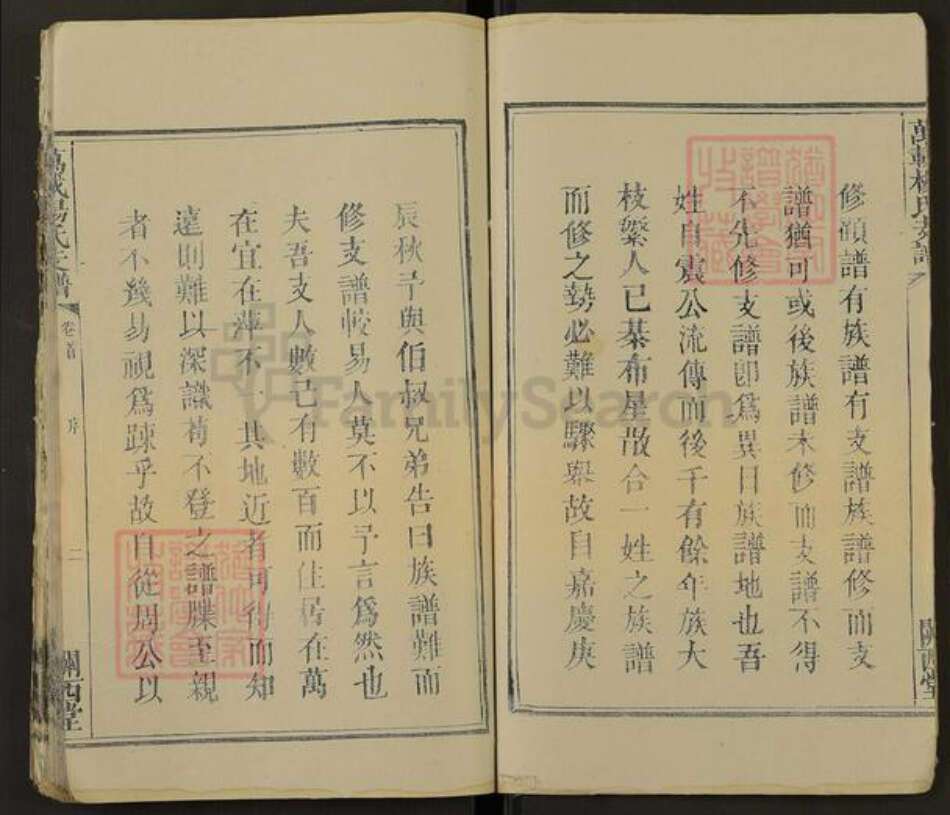 修顧譜有族譜有支譜族譜修而支
譜猶可或後族譜未修而支譜不得
不先修支譜即爲異日族譜地也吾
姓自震公流傳而後千有餘年族大
枝繁人已棊布星散合一姓之族譜
而修之勢必難以驟舉故自嘉慶庚
辰秋予與伯叔兄弟告曰族譜難而
修支譜較易人莫不以予言爲然也
夫吾支人數已有數百而住居在萬
在宜在萍不一其地近者可得而知
遠則難以深識苟不登之譜牒至親
者不幾易視爲踈乎故自從周公以
萬載楊氏支譜
卷首
序
二
關西堂
關西堂
FamilySearch